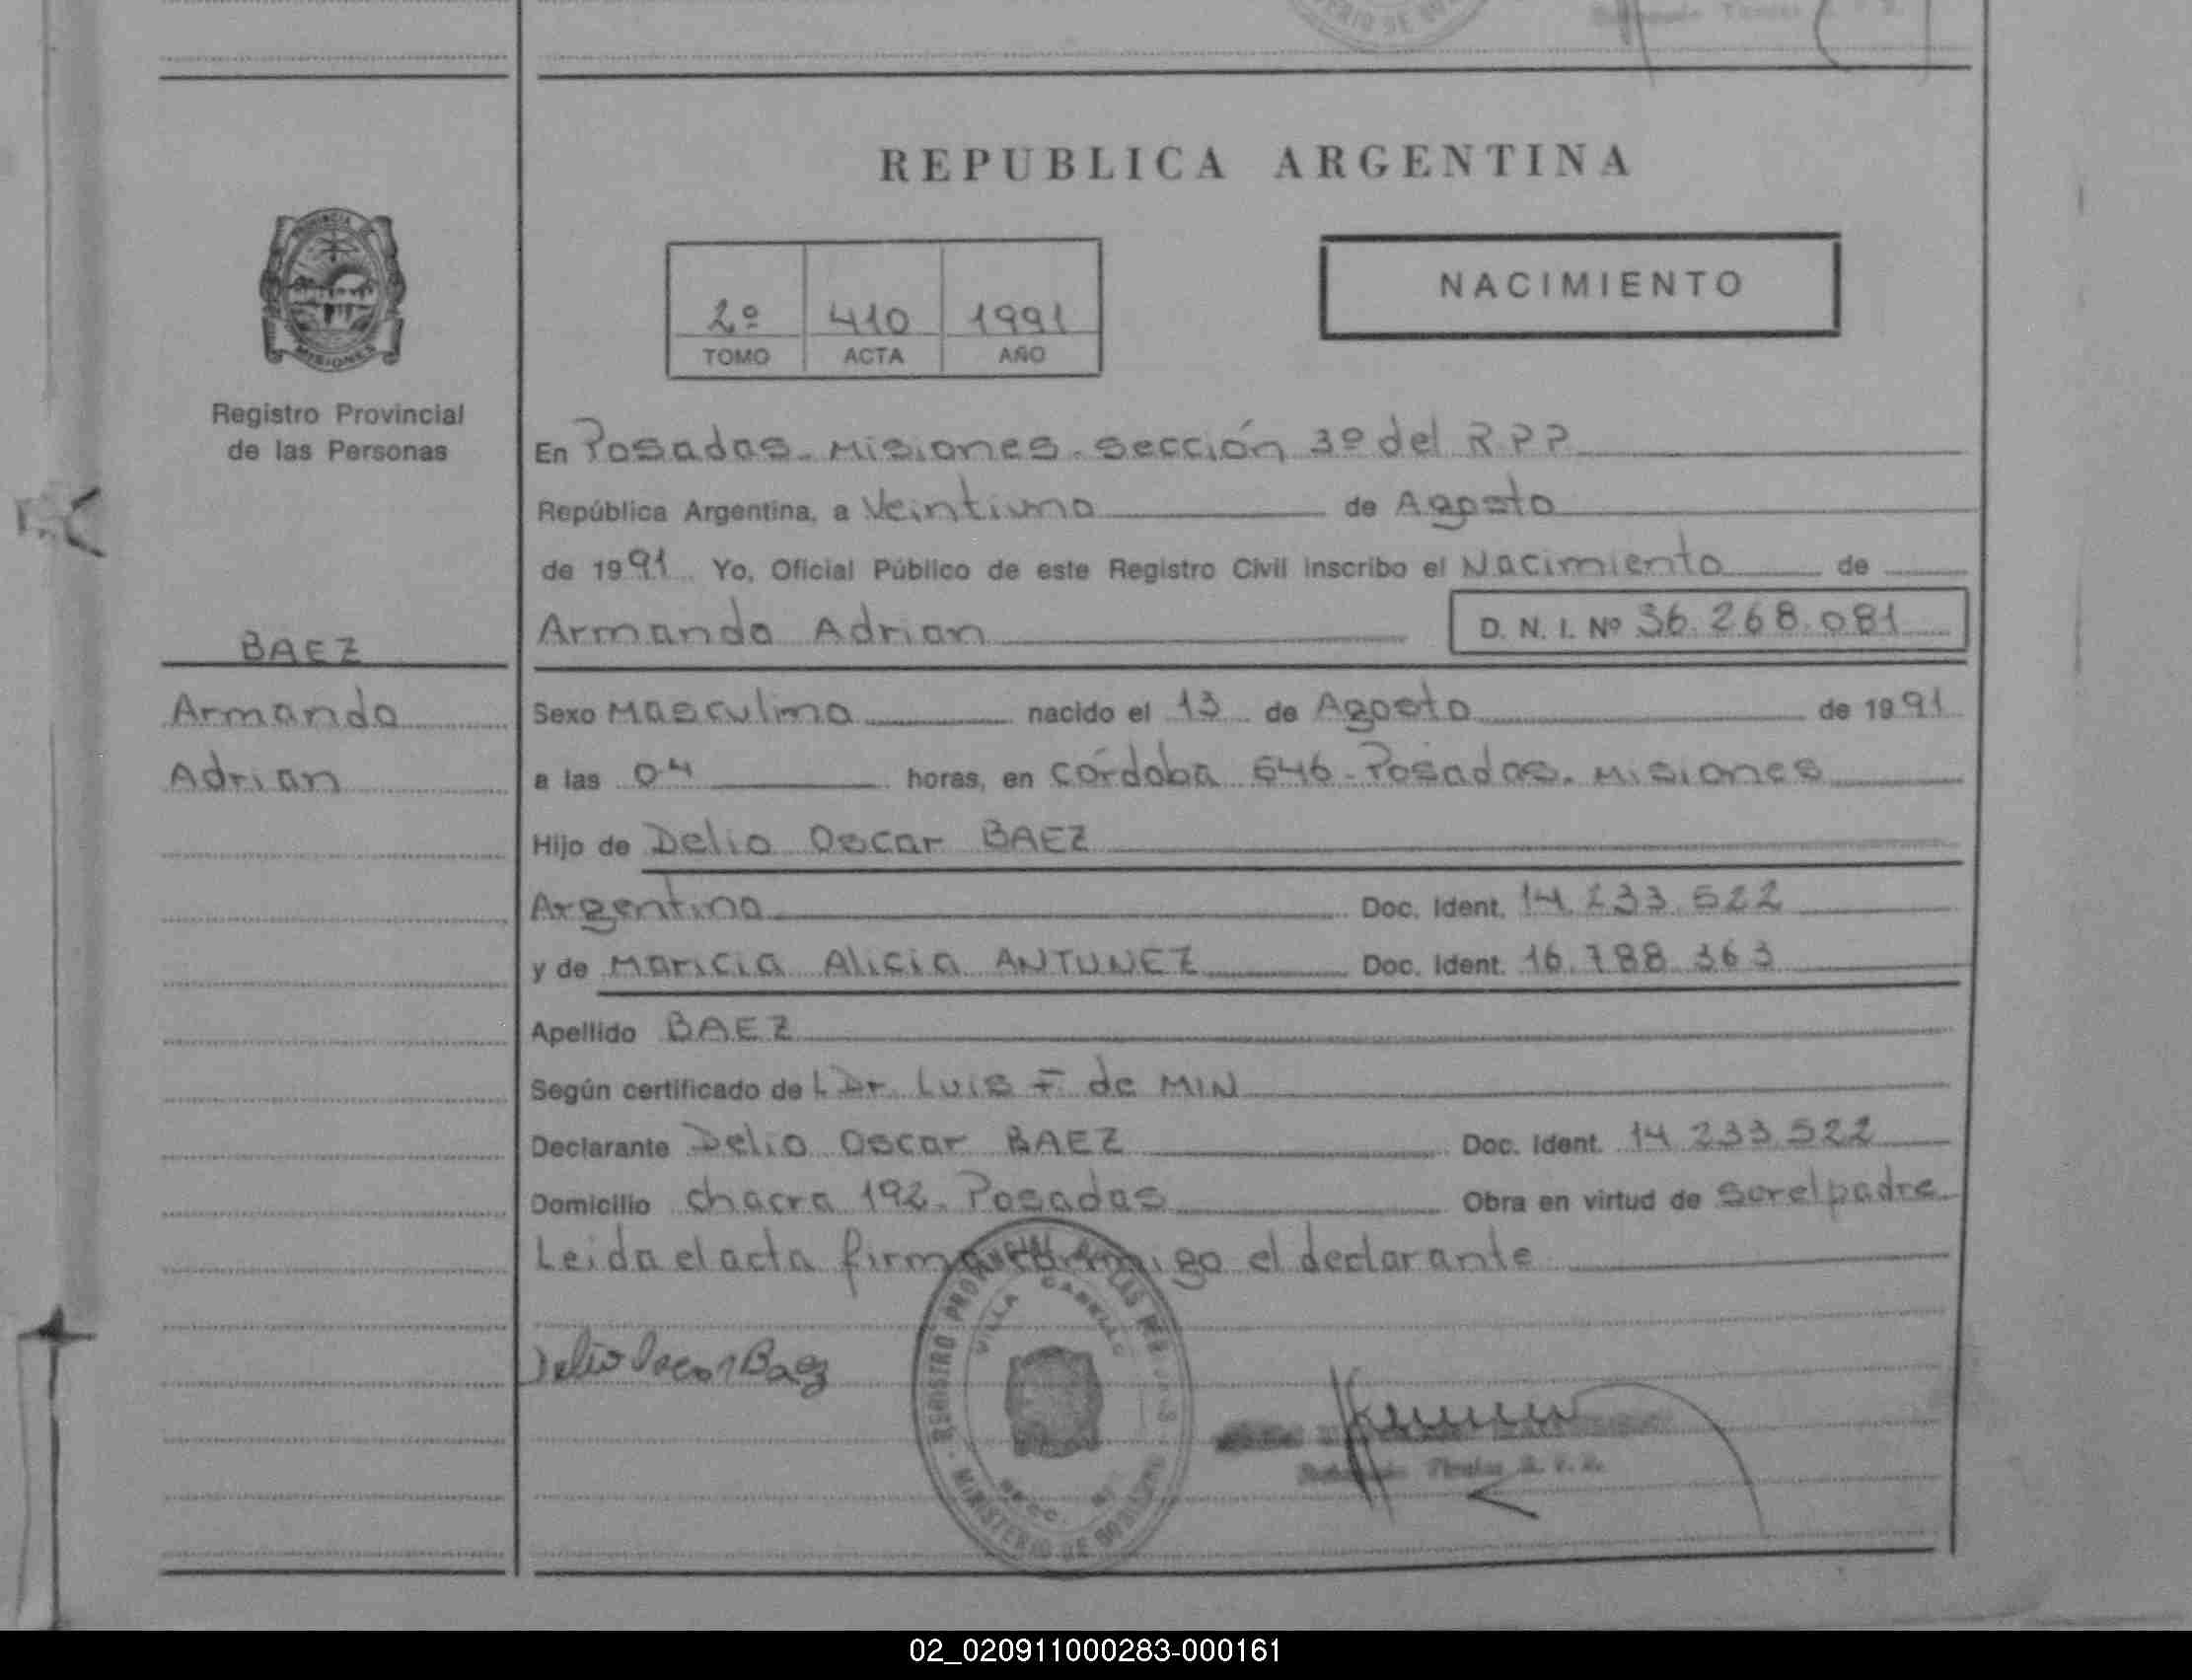 REPUBLICA ARGENTINA
NACIMIENTO
2º 410 1991
TOMO ACTA AÑO
PROVINCIA DE
MISIONES
Registro Provincial
de las Personas
BAEZ
Armando
Adrian
En Posadas. Misiones. sección 3º del R P P
República Argentina, a Veintiuno de Agosto
de 1991 Yo, Oficial Público de este Registro Civil inscribo el Nacimiento de
Armando Adrian D. N. I. Nº 36.268.081
Sexo Masculino nacido el 13 de Agosto de 1991
a las 04 horas, en córdoba 646 - Posadas. Misiones
Hijo de Delio Oscar BAEZ
Argentino Doc. Ident. 14.233.522
y de Maricia Alicia ANTUNEZ Doc. Ident. 16.788.363
Apellido BAEZ
Según certificado de L Dr. Luis F. de MIN
Declarante Delio Oscar BAEZ Doc. Ident. 14 233.522
Domicilio chacra 192. Posadas Obra en virtud de serelpadre
Leida el acta firma conmigo el declarante
Delio Oscar Baez
REGISTRO PROVINCIAL DE LAS PERSONAS
VILLA CABELLO
SECC.
MINISTERIO DE GOBIERNO
02_020911000283-000161